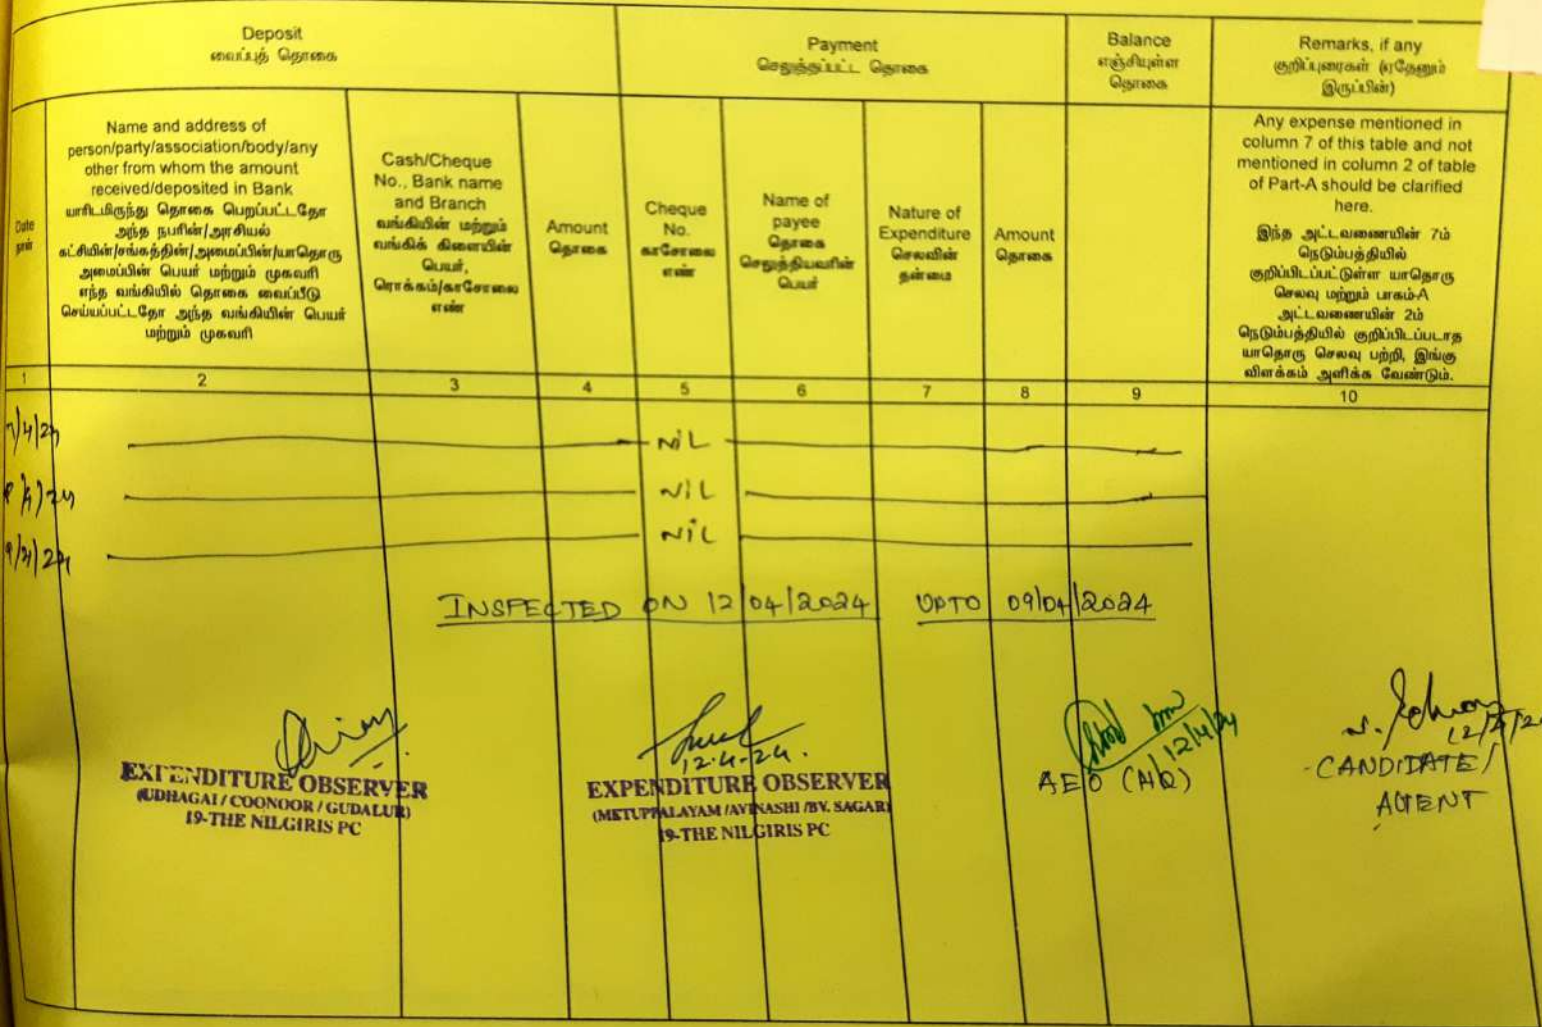 Deposit
வைப்புத் தொகை
Payment
செலுத்தப்பட்ட தொகை
Balance
எஞ்சியுள்ள
தொகை
Remarks, if any
குறிப்புரைகள் (ஏதேனும்
இருப்பின்)
Date
நாள்
Name and address of
person/party/association/body/any
other from whom the amount
received/deposited in Bank
யாரிடமிருந்து தொகை பெறப்பட்டதோ
அந்த நபரின்/அரசியல்
கட்சியின்/சங்கத்தின்/அமைப்பின்/யாதொரு
அமைப்பின் பெயர் மற்றும் முகவரி
எந்த வங்கியில் தொகை வைப்பீடு
செய்யப்பட்டதோ அந்த வங்கியின் பெயர்
மற்றும் முகவரி
Cash/Cheque
No., Bank name
and Branch
வங்கியின் மற்றும்
வங்கிக் கிளையின்
பெயர்,
ரொக்கம்/காசோலை
எண்
Amount
தொகை
Cheque
No.
காசோலை
எண்
Name of
payee
தொகை
செலுத்தியவரின்
பெயர்
Nature of
Expenditure
செலவின்
தன்மை
Amount
தொகை
Any expense mentioned in
column 7 of this table and not
mentioned in column 2 of table
of Part-A should be clarified
here.
இந்த அட்டவணையின் 7ம்
நெடும்பத்தியில்
குறிப்பிடப்பட்டுள்ள யாதொரு
செலவு மற்றும் பாகம்-A
அட்டவணையின் 2ம்
நெடும்பத்தியில் குறிப்பிடப்படாத
யாதொரு செலவு பற்றி, இங்கு
விளக்கம் அளிக்க வேண்டும்.
1 2 3 4 5 6 7 8 9 10
7/4/24 NIL
8/4/24 NIL
9/4/24 NIL
INSPECTED ON 12/04/2024 UPTO 09/04/2024
12.4.24.
12/4/24
EXPENDITURE OBSERVER
(UDHAGAI / COONOOR / GUDALUR)
19-THE NILGIRIS PC
EXPENDITURE OBSERVER
(METUPPALAYAM /AVINASHI /BV. SAGAR)
19-THE NILGIRIS PC
AEO (HQ)
CANDIDATE/
AGENT